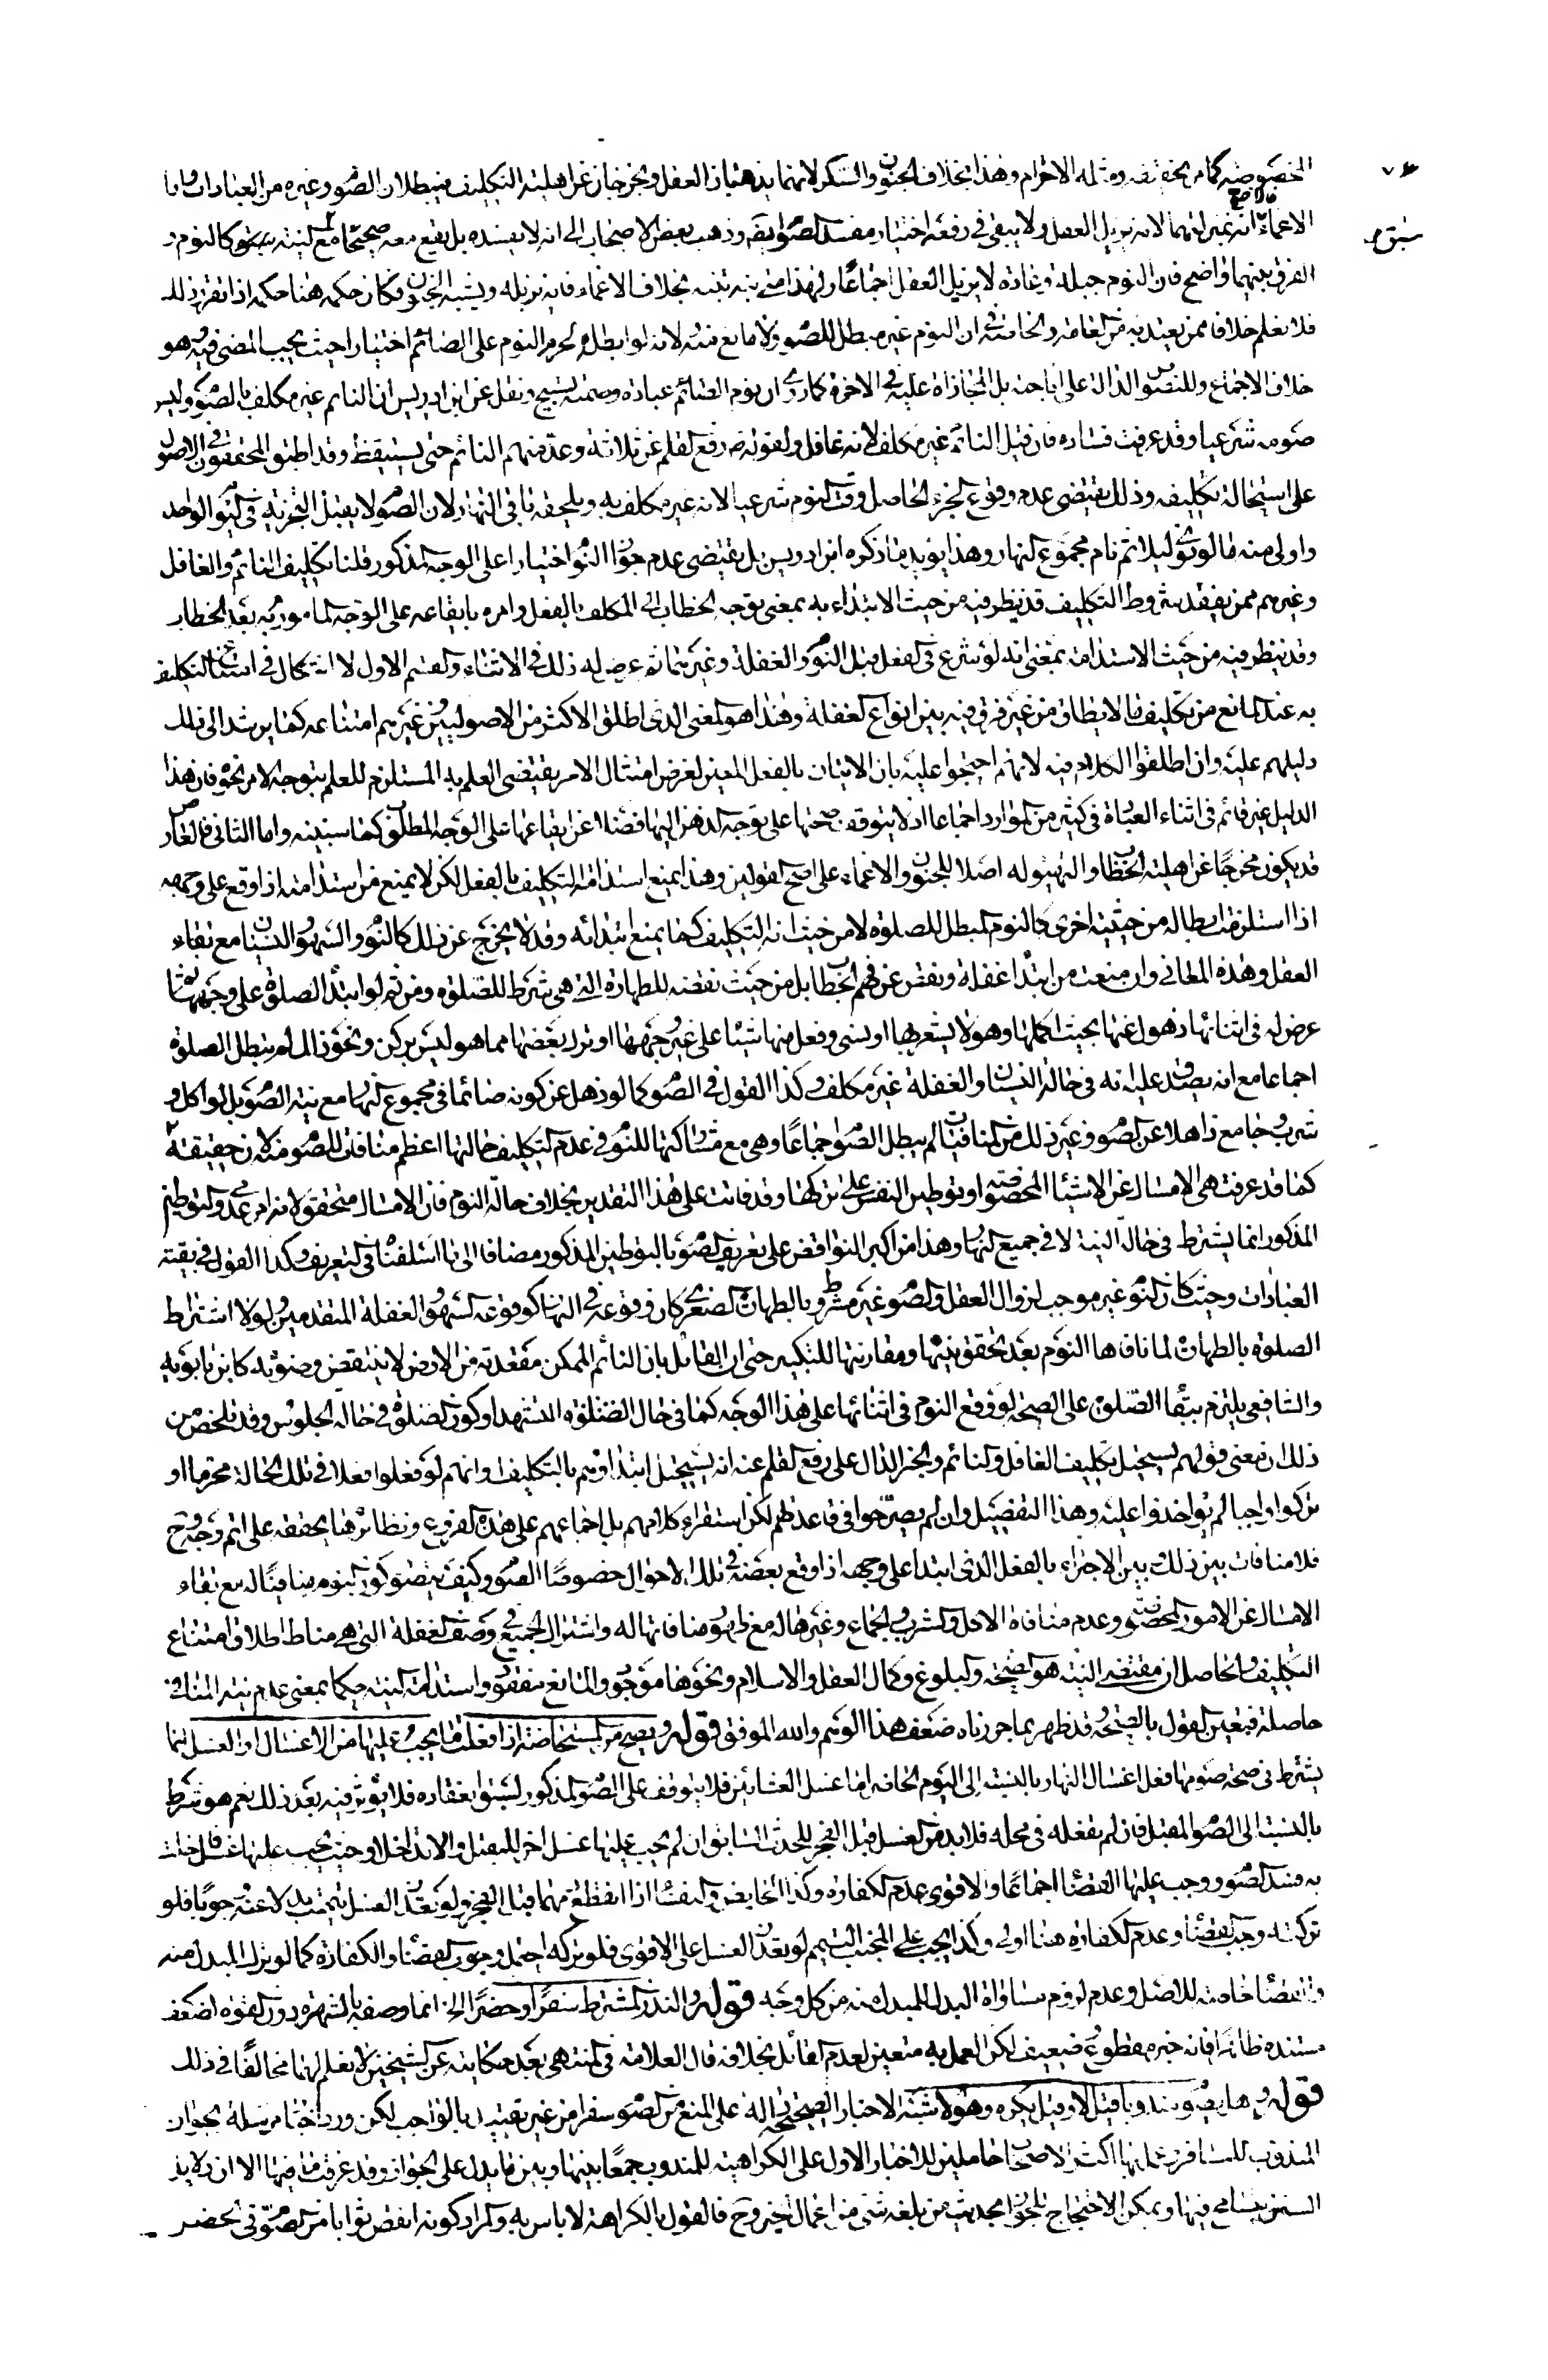 المخصوصة كما مر تحقيقه ومثله الاحرام وهذا بخلاف الجنون والسكر لانهما يذهبان العقل ويخرجان عن اهلية التكليف فيبطلان الصوم وغيره من العبادات واما
الاغماء لانه يزيل العقل ولا يبقى في رفعه اختيار مفسد للصوم وذهب بعض الاصحاب الى انه لا يفسده بل يقع معه صحيحا مع سبق النية كالنوم و
الفرق بينهما واضح فان النوم جبلة وعادة لا يزيل العقل اجماعا ولهذا متى نبه تنبه بخلاف الاغماء فانه يزيله ويشبه الجنون فكان حكمه هنا حكمه اذا تقرر ذلك
فلا نعلم خلافا ممن يعتد به من العامة والخاصة في ان النوم غير مبطل للصوم ولا مانع منه لانه لو ابطله لحرم النوم على الصائم اختيارا حيث يجب المضي فيه وهو
خلاف الاجماع وللنصوص الدالة على اباحته بل المجازاة عليه في الاخرة كما روي ان نوم الصائم عبادة وصمته تسبيح ونقل عن ابن ادريس ان النائم غير مكلف بالصوم وليس
صومه شرعيا وقد عرفت فساده فان قيل النائم غير مكلف لانه غافل ولقوله ص رفع القلم عن ثلاثة وعد منهم النائم حتى يستيقظ وقد اطبق المحققون في الاصول
على استحالة تكليفه وذلك يقتضي عدم وقوع الجزء الحاصل وقت النوم شرعيا لانه غير مكلف به ويلحقه باقي النهار لان الصوم لا يقبل التجزية في اليوم الواحد
واولى منه ما لو نوى ليلا ثم نام مجموع النهار وهذا يؤيد ما ذكره ابن ادريس بل يقتضي عدم جواز النوم اختيارا على الوجه المذكور قلنا تكليف النائم والغافل
وغيرهم ممن يفقد شروط التكليف قد ينظر فيه من حيث الابتداء به بمعنى توجه الخطاب الى المكلف بالفعل وامره بايقاعه على الوجه المامور به بعد الخطاب
وقد ينظر فيه من حيث الاستدامة بمعنى انه لو شرع في الفعل قبل النوم والغفلة وغيرهما ثم عرض له ذلك في الاثناء والقسم الاول لا اشكال في امتناع التكليف
به عند المانع من تكليف ما لا يطاق من غير فرق فيه بين انواع الغفلة وهذا هو المعنى الذي اطلق الاكثر من الاصوليين وغيرهم امتناعه كما يرشد الى ذلك
دليلهم عليه وان اطلقوا الكلام فيه لانهم احتجوا عليه بان الاتيان بالفعل المعين لغرض امتثال الامر يقتضي العلم به المستلزم للعلم بتوجه الامر نحوه فان هذا
الدليل غير قائم في اثناء العبادة في كثير من الموارد اجماعا اذ لا يتوقف صحتها على توجه الذهن اليها فضلا عن ايقاعها على الوجه المطلوب كما سنبينه واما الثاني فالعارض
قد يكون مخرجا عن اهلية الخطاب والتهيؤ له اصلا كالجنون والاغماء على اصح القولين وهذا يمنع استدامة التكليف بالفعل لكن لا يمنع من استدامته اذا وقع على وجهه
اذا استلزمت ابطاله من حيثية اخرى كالنوم المبطل للصلوة لا من حيث انه التكليف كما يمنع ابتدائه وقد لا يخرج عن ذلك كالنوم والسهو والنسيان مع بقاء
العقل وهذه المعاني وان منعت من ابتداء غفلة ونقص عن فهم الخطاب بل من حيث نقضه للطهارة التي هي شرط للصلوة ومن ثم لو ابتدأ الصلوة على وجهها ثم
عرض له في اثنائها ذهول عنها بحيث اكملها وهو لا يشعر بها او نسي وفعل منها شيئا على غير وجهها او ترك بعضها مما هو ليس بركن ونحو ذلك لم يبطل الصلوة
اجماعا مع انه يصدق عليه انه في حالة النسيان والغفلة غير مكلف وكذا القول في الصوم كما لو ذهل عن كونه صائما في مجموع النهار مع نية الصوم بل لو اكل و
شرب وجامع ذاهلا عن الصوم وغير ذلك من المنافيات لم يبطل الصوم اجماعا وهي مع مشاركتها للنوم في عدم التكليف حالتها اعظم منافاة للصوم منه لان حقيقته
كما قد عرفت هي الامساك عن الاشياء المخصوصة او توطين النفس على تركها وقد فاتت على هذا التقدير بخلاف حالة النوم فان الامساك متحقق لانه امر عدمي والتوطين
المذكور انما يشترط في حالة النية لا في جميع النهار وهذا من اكبر النواقض على تعريف الصوم بالتوطين المذكور مضافا الى ما اسلفناه في التعريف وكذا القول في بقية
العبادات وحيث كان النوم غير موجب لزوال العقل والصوم غير مشروط بالطهارة الصغرى كان وقوعه في النهار كوقوع السهو والغفلة المتقدمين ولولا اشتراط
الصلوة بالطهارة لما نافاها النوم بعد تحقق نيتها ومقارنتها للتكبير حتى ان القائل بان النائم الممكن مقعدته من الارض لا ينتقض وضوئه كابن بابويه
والشافعي يلتزم ببقاء الصلوة على الصحة لو وقع النوم في اثنائها على هذا الوجه كما في حال الصلوة التشهد او كون الصلوة في حالة الجلوس وقد تلخص من
ذلك ان معنى قولهم يستحيل تكليف الغافل والنائم والخبر الدال على رفع القلم عنه انه يستحيل ابتداؤهم بالتكليف وانهم لو فعلوا فعلا في تلك الحالة محرما او
تركوا واجبا لم يؤاخذوا عليه وهذا التفصيل وان لم يصرحوا في قاعدتهم لكن استقراء كلامهم بل اجماعهم على هذه الفروع ونظائرها يحققه على اتم وجه وح
فلا منافات بين ذلك وبين الاجزاء بالفعل الذي ابتدا على وجهه اذا وقع بعضه في تلك الاحوال خصوصا الصوم وكيف يتصور كون النوم منافيا له مع بقاء
الامساك عن الامور المخصوصة وعدم منافاة الاكل والشرب والجماع وغيرها له مع ظهور منافاتها له واشتراك الجميع في وصف الغفلة التي هي مناط اطلاق امتناع
التكليف والحاصل ان مقتضى النية هو الصحة والبلوغ وكمال العقل والاسلام ونحوها موجود والمانع مفقود واستدامة النية حكما بمعنى عدم نية المنافي
حاصلة فتعين القول بالصحة وقد ظهر بما حررناه ضعف هذا الوهم والله الموفق قوله ويصح من المستحاضة اذا فعلت ما يجب عليها من الاغسال او الغسل انما
يشترط في صحة صومها فعل اغسال النهار بالنسبة الى اليوم الحاضر اما غسل العشائين فلا يتوقف على الصوم المذكور لسبق انعقاده فلا يؤثر فيه بعد ذلك نعم هو شرط
بالنسبة الى الصوم المقبل فان لم تفعله في محله فلا بد من الغسل قبل الفجر للحدث السابق وان لم يجب عليها غسل اخر للمقبل والا تداخلا وحيث يجب عليها غسل فاخلت
به فسد الصوم ووجب عليها القضاء اجماعا والاقوى عدم الكفارة وكذا الحايض والنفساء اذا انقطع دمهما قبل الفجر ولو تعذر الغسل تيممت بدلا عنه وجوبا فلو
تركته وجب القضاء وعدم الكفارة هنا اولى وكذا يجب على الجنب التيمم لو تعذر الغسل على الاقوى فلو تركه احتمل وجوب القضاء والكفارة كما لو ترك المبدل منه
والقضاء خاصة للاصل وعدم لزوم مساواة البدل للمبدل منه من كل وجه قوله والنذر المشترط سفرا وحضرا الخ انما وصفه بالشهرة دون القوة لضعف
مستنده ظاهرا فانه خبر مقطوع ضعيف لكن العمل به متعين لعدم القائل بخلافه قال العلامة في المنتهى بعد حكايته عن الشيخين لا نعلم لهما مخالفا في ذلك
قوله وهل يصوم مندوبا قيل لا وقيل يكره وهو الاشبه الاخبار الصحيحة دالة على المنع من الصوم سفرا من غير تقييد بالواجب لكن ورد اخبار مرسلة بجواز
المندوب للمسافر عمل بها اكثر الاصحاب حاملين للاخبار الاول على الكراهية للمندوب جمعا بينها وبين ما يدل على الجواز وقد عرفت ما فيها الا ان دلايل
السنن يتسامح فيها ويمكن الاحتجاج للجواز بحديث من بلغه شيء من اعمال الخير وح فالقول بالكراهة لا باس به والمراد كونه انقص ثوابا من الصوم في الحضر